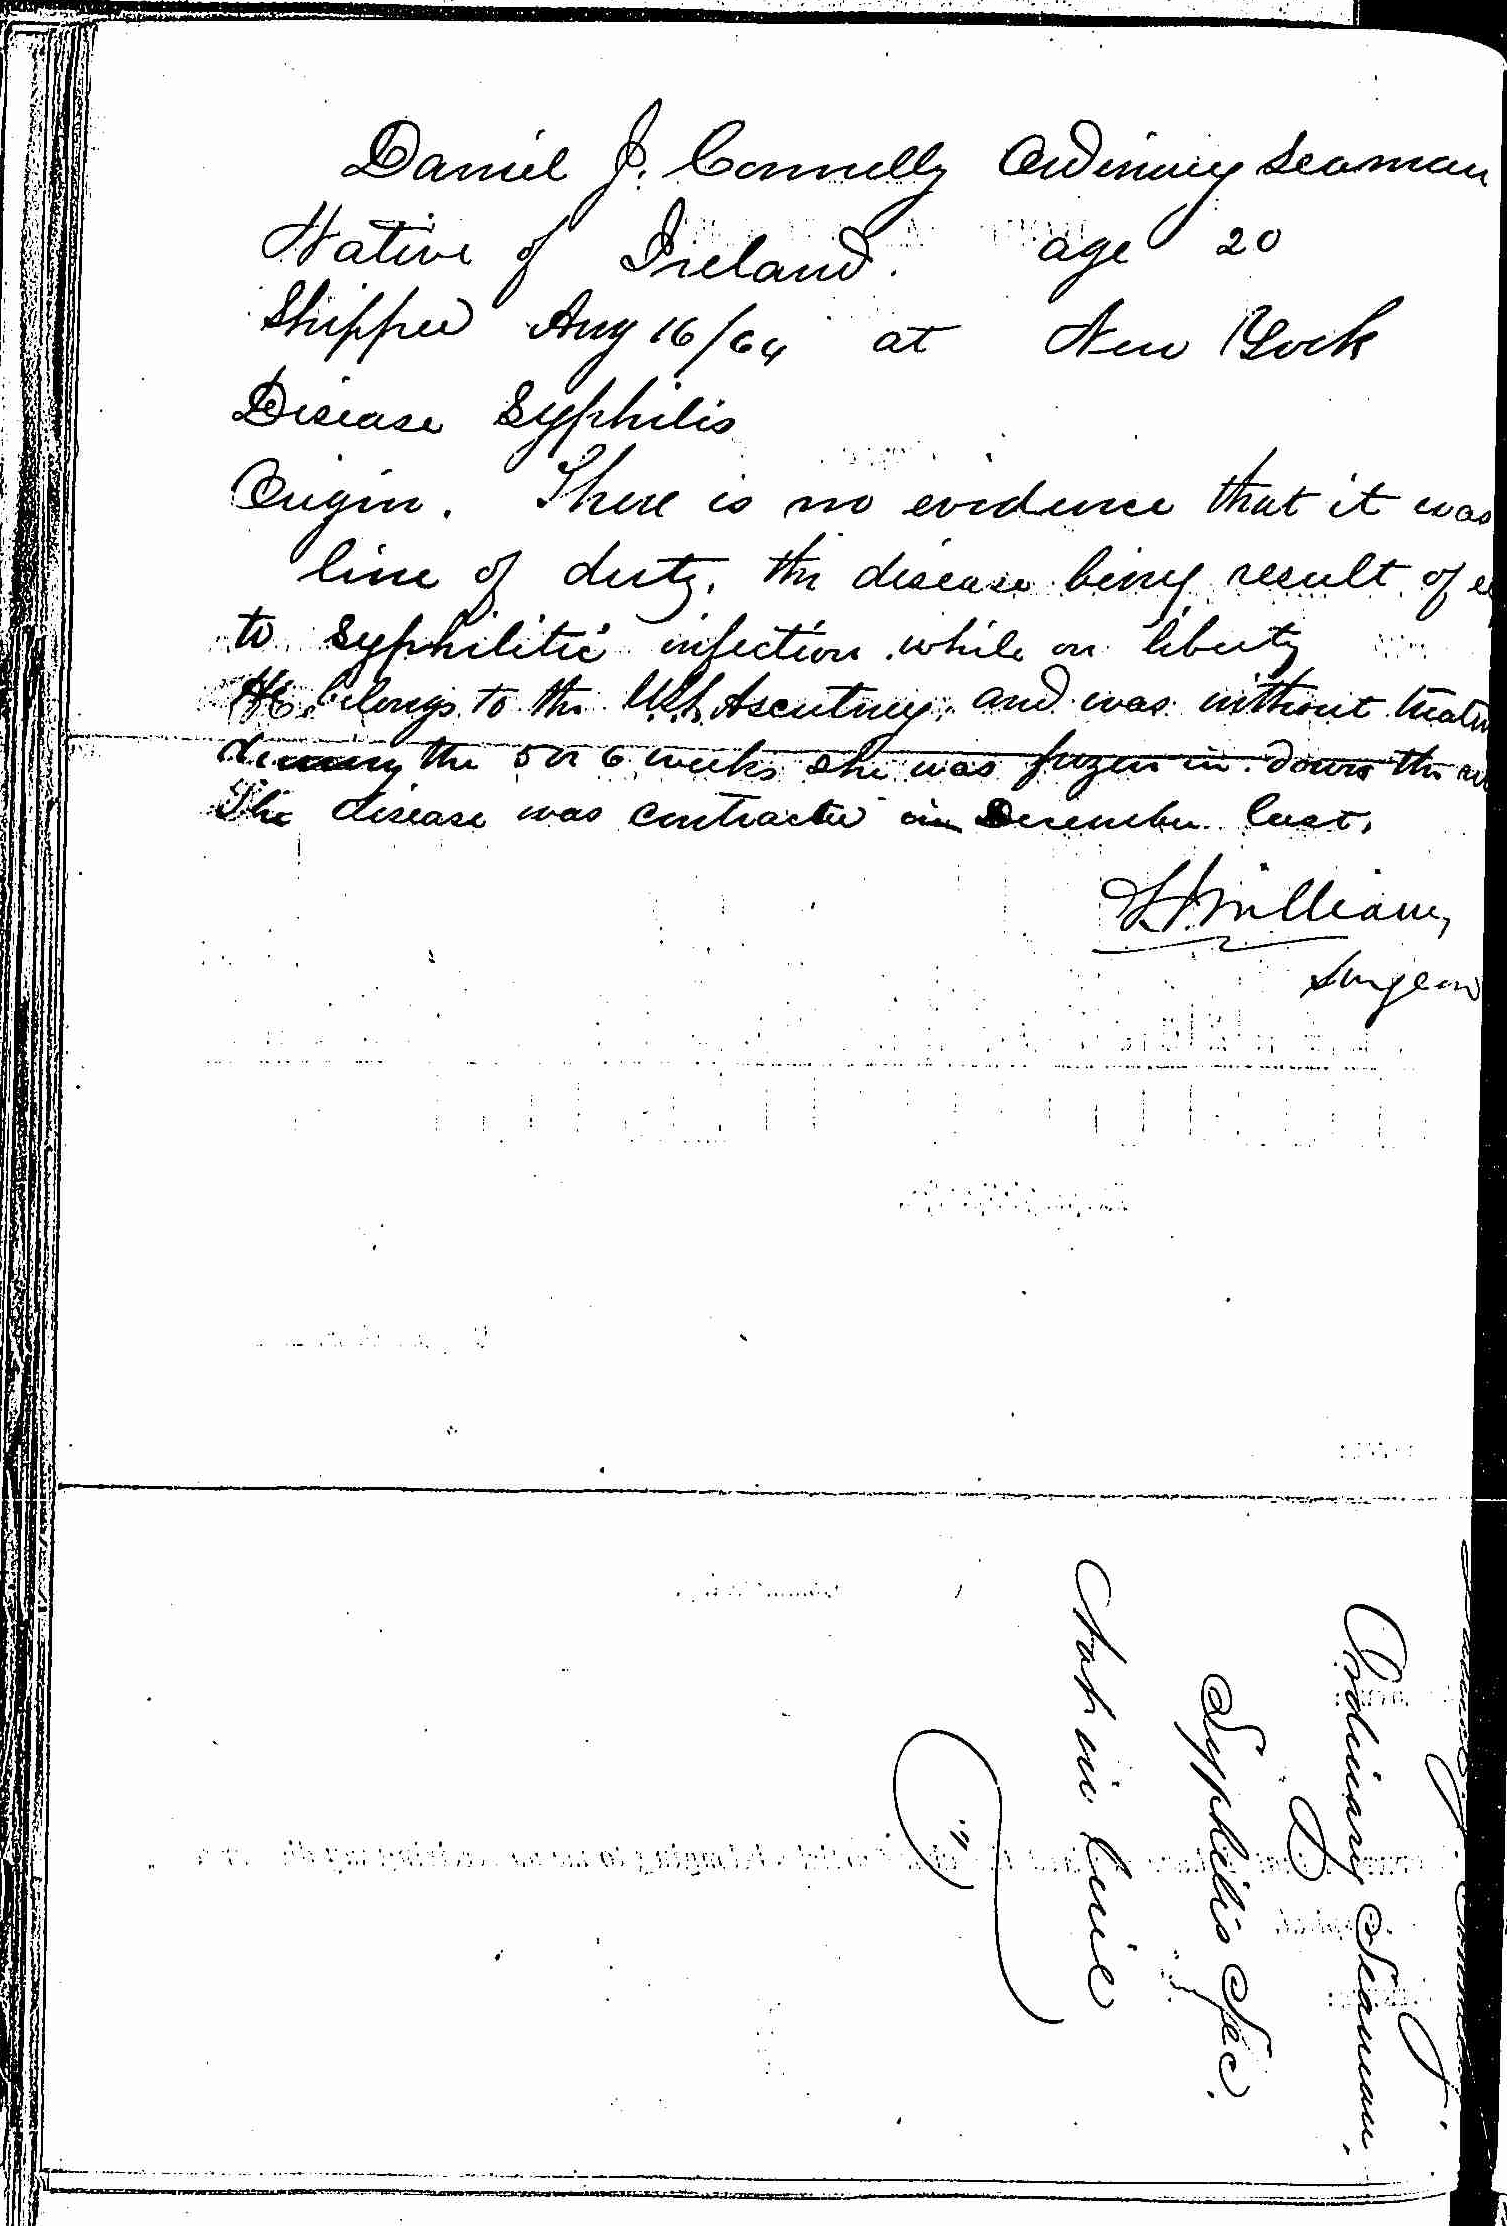 Daniel J. Connelly Ordinary Seaman
Native of Ireland. age 20
Shipped Aug 16/64 at New York
Disease Syphilis
Origin. There is no evidence that it was
line of duty. the disease being result of
to Syphilitic infection while on liberty
He belongs to the U.S.S. Ascutney, and was without treatm
during the 5 or 6 weeks she was frozen in down the
The disease was contracted in December last.
Williams,
Surgeon
Ordinary Seaman.
Syphilis Sec.
Not in line